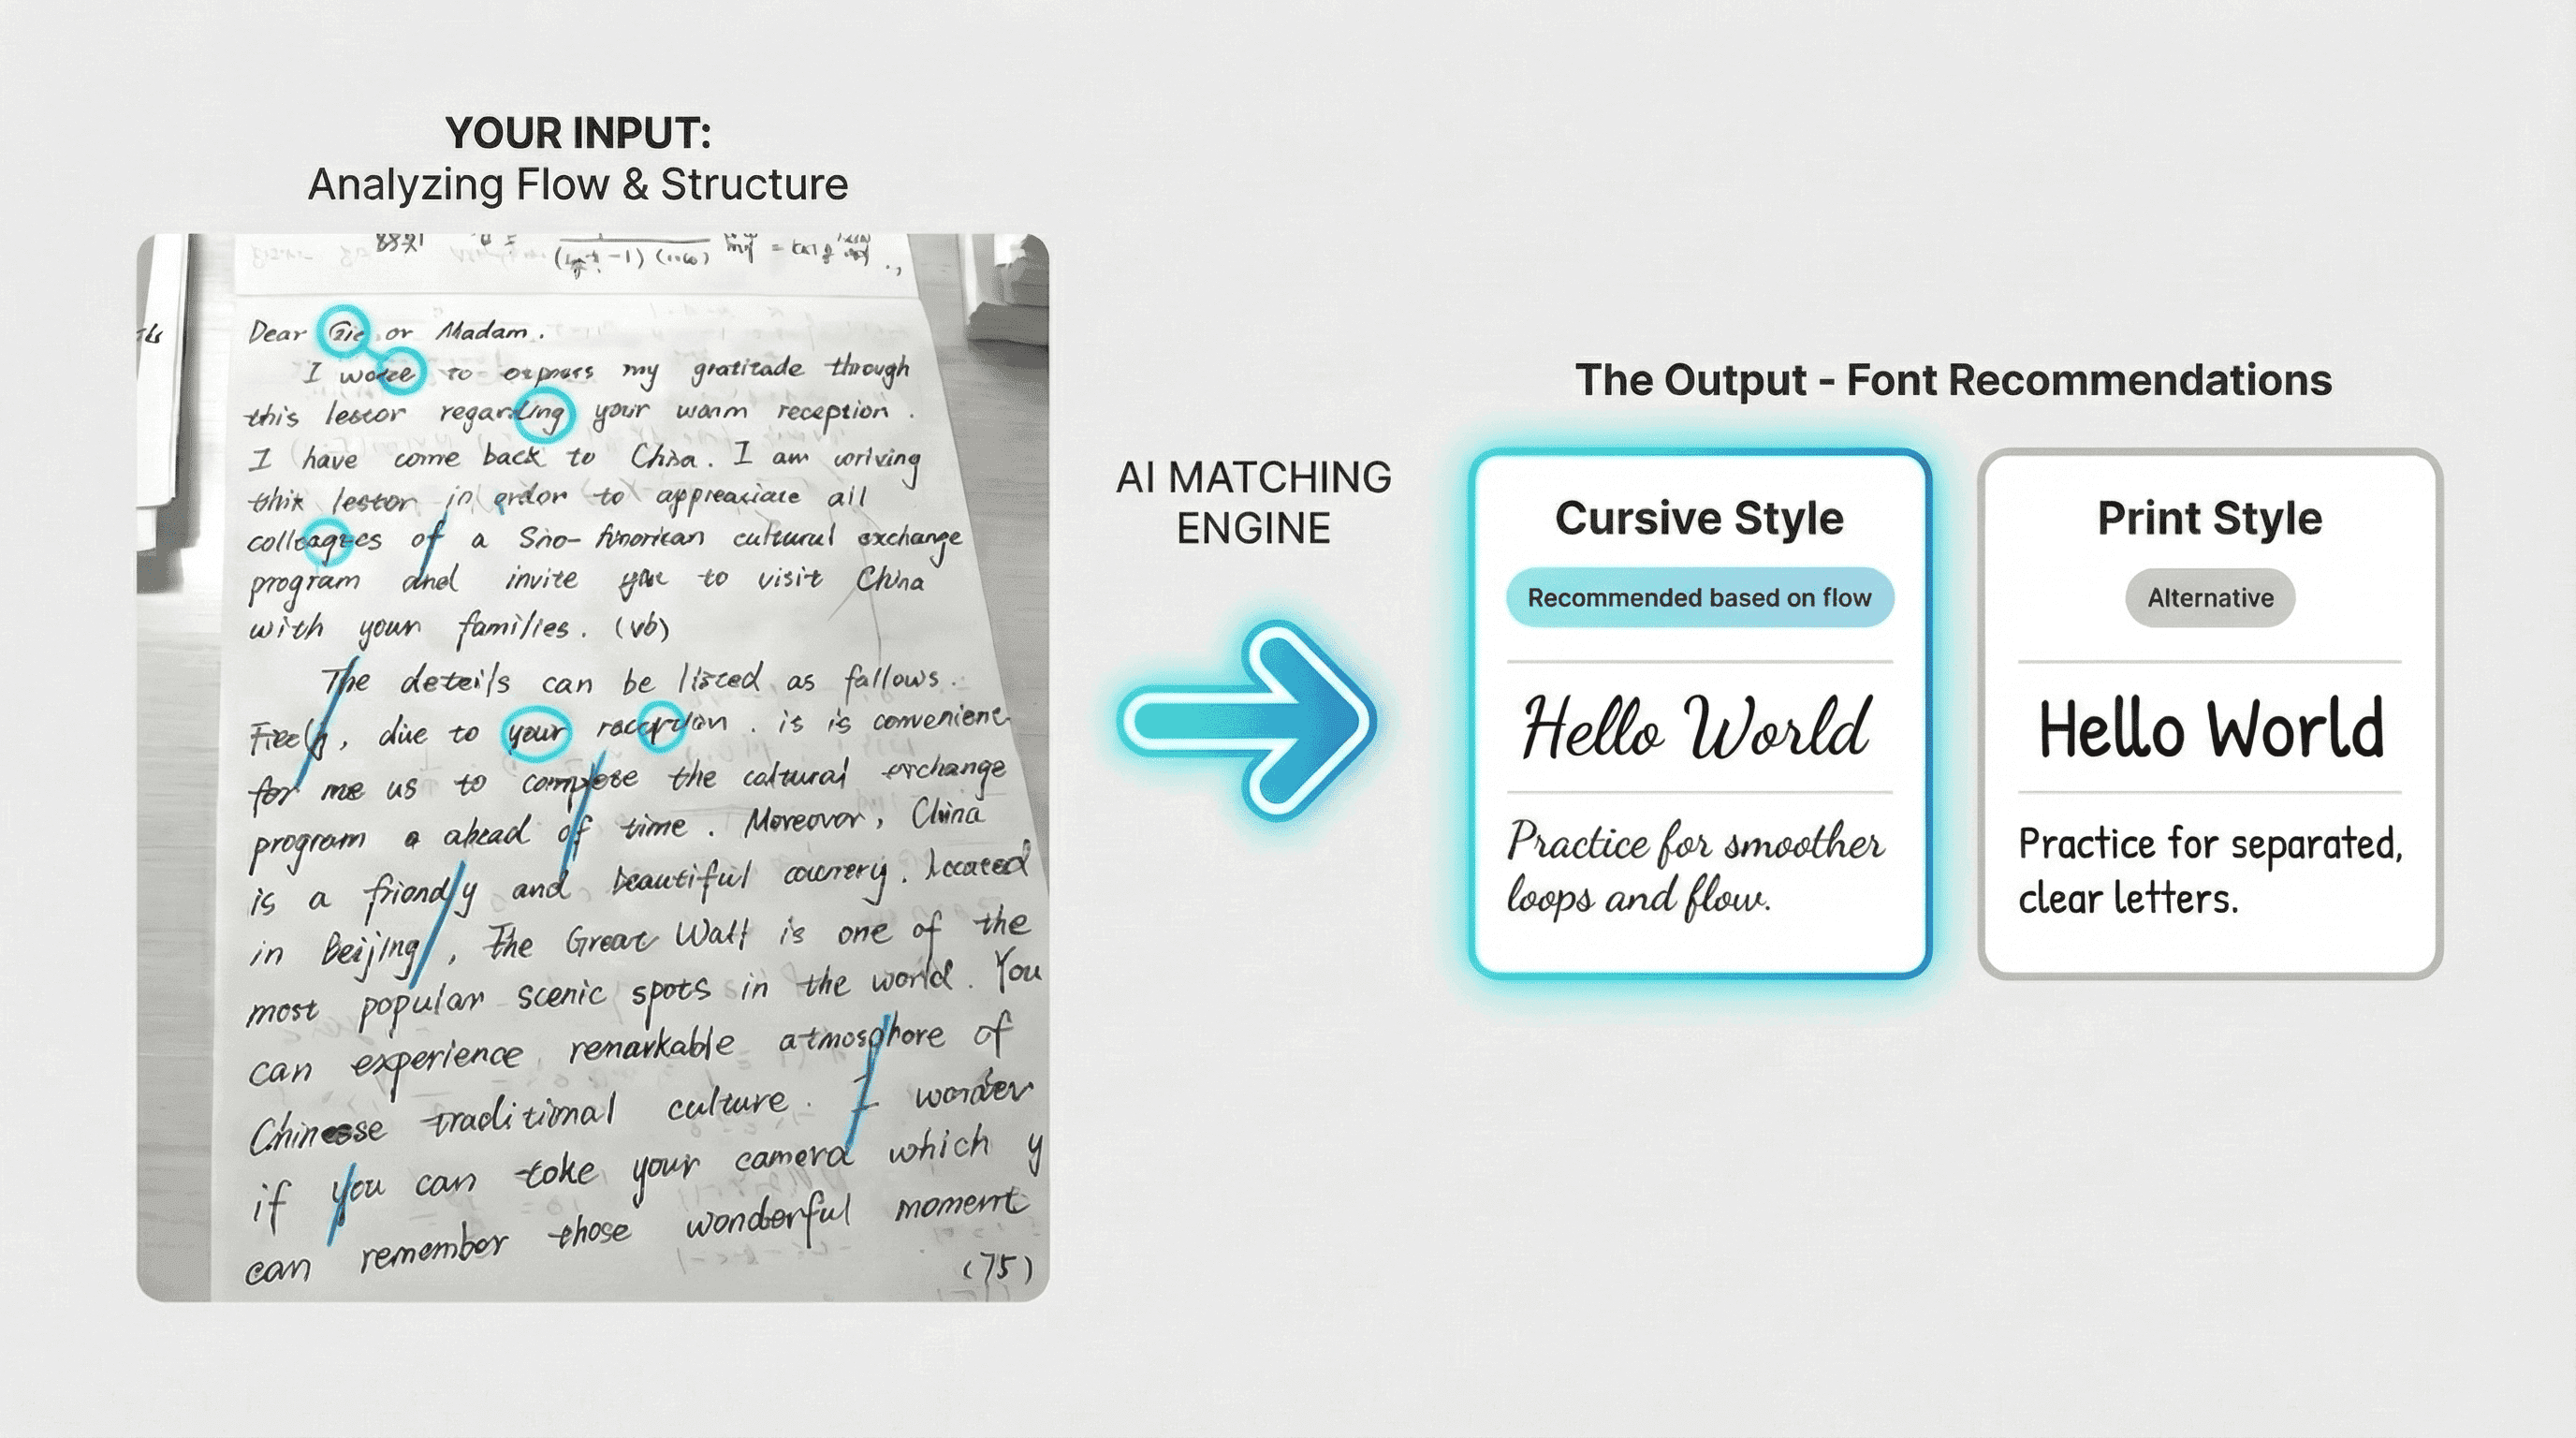 YOUR INPUT:
Analyzing Flow & Structure
Dear or Madam.
I to my gratitade through
this lestor regarding your warm reception.
I have come back to China. I am
thix lestor in ordor to appreaciate all
of a Sino- cultural exchange
program and invite you to visit China
with your families. (vb)
The details can be listed as fallows.
due to your . is is convenient
for me us to the caltural exchange
program a ahead of time. Moreover, China
is a friendly and beautiful . located
in Beijing, The Great Wall is one of the
most popular scenic spots in the world. You
can experience remarkable atmosphore of
Chinesse traditional culture. I wonder
if you can toke your camera which y
can remember those wonderful moment
(75)
AI MATCHING
ENGINE
The Output - Font Recommendations
Cursive Style
Recommended based on flow
Hello World
Practice for smoother
loops and flow.
Print Style
Alternative
Hello World
Practice for separated,
clear letters.